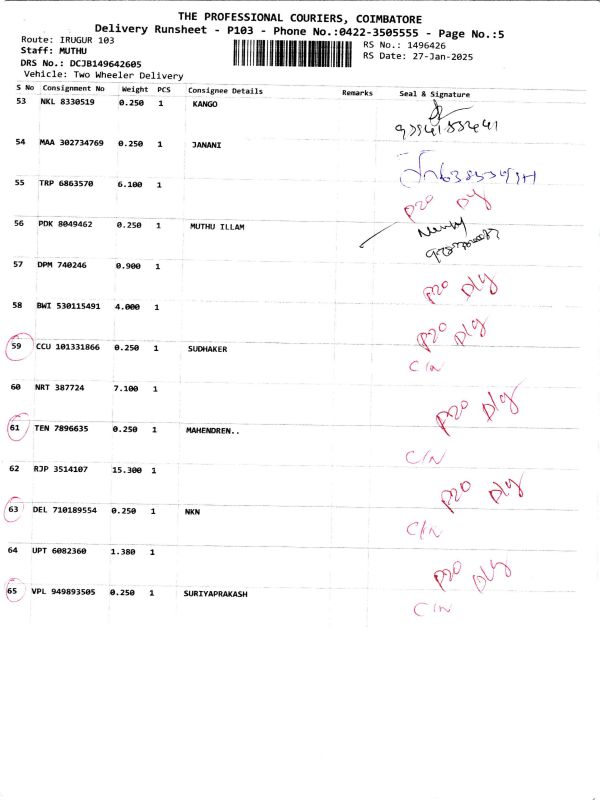 THE PROFESSIONAL COURIERS, COIMBATORE
Delivery Runsheet - P103 - Phone No.:0422-3505555 - Page No.:5
Route: IRUGUR 103 RS No.: 1496426
Staff: MUTHU RS Date: 27-Jan-2025
DRS No.: DCJB149642605
Vehicle: Two Wheeler Delivery
S No Consignment No Weight PCS Consignee Details Remarks Seal & Signature
53 NKL 8330519 0.250 1 KANGO
54 MAA 302734769 0.250 1 JANANI
55 TRP 6863570 6.100 1 P20 Dly
56 PDK 8049462 0.250 1 MUTHU ILLAM
57 DPM 740246 0.900 1 P20 Dly
58 BWI 530115491 4.000 1 P20 Dly
59 CCU 101331866 0.250 1 SUDHAKER C/N
60 NRT 387724 7.100 1 P20 Dly
61 TEN 7896635 0.250 1 MAHENDREN.. C/N
62 RJP 3514107 15.300 1 P20 Dly
63 DEL 710189554 0.250 1 NKN C/N
64 UPT 6082360 1.380 1 P20 Dly
65 VPL 949893505 0.250 1 SURIYAPRAKASH C/N